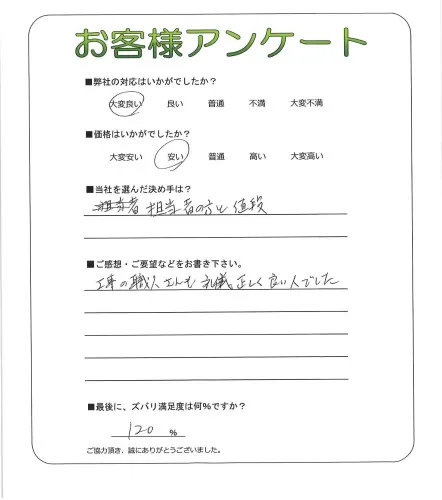 お客様アンケート
■弊社の対応はいかがでしたか？
大変良い 良い 普通 不満 大変不満
■価格はいかがでしたか？
大変安い 安い 普通 高い 大変高い
■当社を選んだ決め手は？
担当者 担当者の方と値段
■ご感想・ご要望などをお書き下さい。
工事の職人さんも礼儀正しく良い人でした
■最後に、ズバリ満足度は何％ですか？
120 ％
ご協力頂き、誠にありがとうございました。